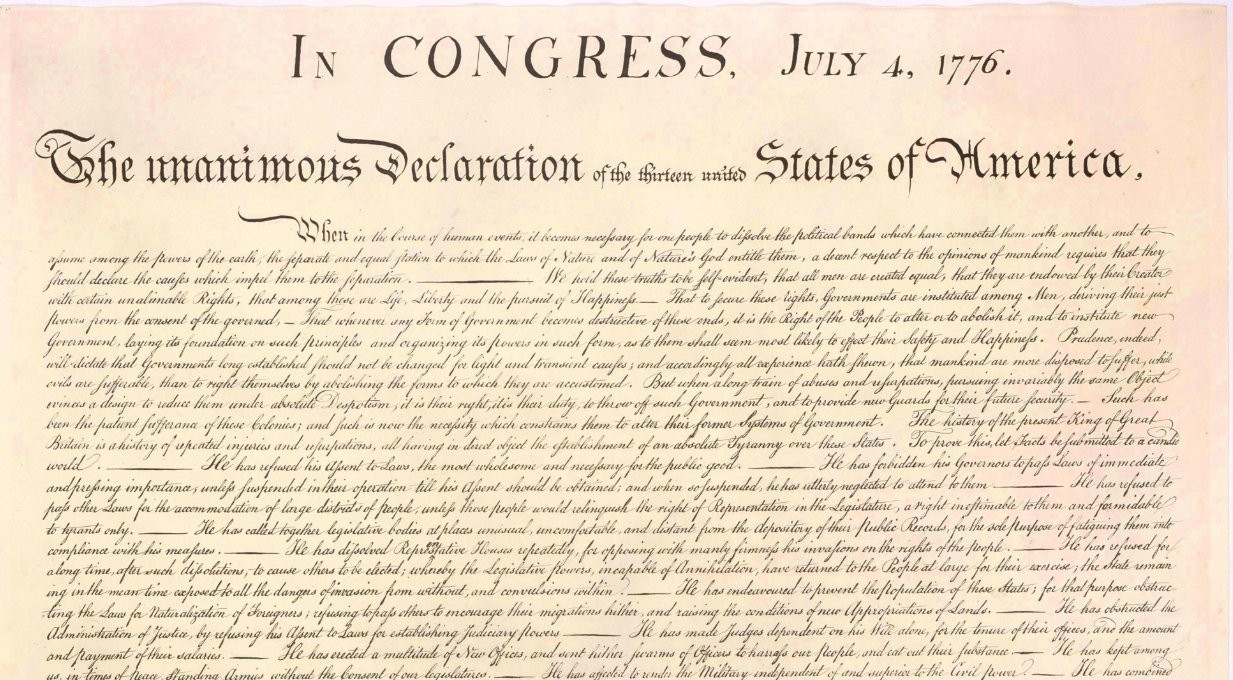 In CONGRESS, July 4, 1776.
The unanimous Declaration of the thirteen united States of America,
When in the Course of human events, it becomes necessary for one people to dissolve the political bands which have connected them with another, and to
assume among the powers of the earth, the separate and equal station to which the Laws of Nature and of Nature's God entitle them, a decent respect to the opinions of mankind requires that they
should declare the causes which impel them to the separation. ——— We hold these truths to be self-evident, that all men are created equal, that they are endowed by their Creator
with certain unalienable Rights, that among these are Life, Liberty and the pursuit of Happiness.— That to secure these rights, Governments are instituted among Men, deriving their just
powers from the consent of the governed, — That whenever any Form of Government becomes destructive of these ends, it is the Right of the People to alter or to abolish it, and to institute new
Government, laying its foundation on such principles and organizing its powers in such form, as to them shall seem most likely to effect their Safety and Happiness. Prudence, indeed,
will dictate that Governments long established should not be changed for light and transient causes; and accordingly all experience hath shewn, that mankind are more disposed to suffer, while
evils are sufferable, than to right themselves by abolishing the forms to which they are accustomed. But when a long train of abuses and usurpations, pursuing invariably the same Object
evinces a design to reduce them under absolute Despotism, it is their right, it is their duty, to throw off such Government, and to provide new Guards for their future security. — Such has
been the patient sufferance of these Colonies; and such is now the necessity which constrains them to alter their former Systems of Government. The history of the present King of Great
Britain is a history of repeated injuries and usurpations, all having in direct object the establishment of an absolute Tyranny over these States. To prove this, let Facts be submitted to a candid
world. ——— He has refused his Assent to Laws, the most wholesome and necessary for the public good. ——— He has forbidden his Governors to pass Laws of immediate
and pressing importance, unless suspended in their operation till his Assent should be obtained; and when so suspended, he has utterly neglected to attend to them ——— He has refused to
pass other Laws for the accommodation of large districts of people, unless those people would relinquish the right of Representation in the Legislature, a right inestimable to them and formidable
to tyrants only. ——— He has called together legislative bodies at places unusual, uncomfortable, and distant from the depository of their Public Records, for the sole purpose of fatiguing them into
compliance with his measures. ——— He has dissolved Representative Houses repeatedly, for opposing with manly firmness his invasions on the rights of the people. ——— He has refused for
a long time, after such dissolutions, to cause others to be elected; whereby the Legislative powers, incapable of Annihilation, have returned to the People at large for their exercise; the State remain
ing in the mean time exposed to all the dangers of invasion from without, and convulsions within. ——— He has endeavoured to prevent the population of these States; for that purpose obstruc-
ting the Laws for Naturalization of Foreigners; refusing to pass others to encourage their migrations hither, and raising the conditions of new Appropriations of Lands. ——— He has obstructed the
Administration of Justice, by refusing his Assent to Laws for establishing Judiciary powers ——— He has made Judges dependent on his Will alone, for the tenure of their offices, and the amount
and payment of their salaries. ——— He has erected a multitude of New Offices, and sent hither swarms of Officers to harrass our People, and eat out their substance. ——— He has kept among
us, in times of peace, Standing Armies without the Consent of our legislatures. ——— He has affected to render the Military independent of and superior to the Civil power. ——— He has combined